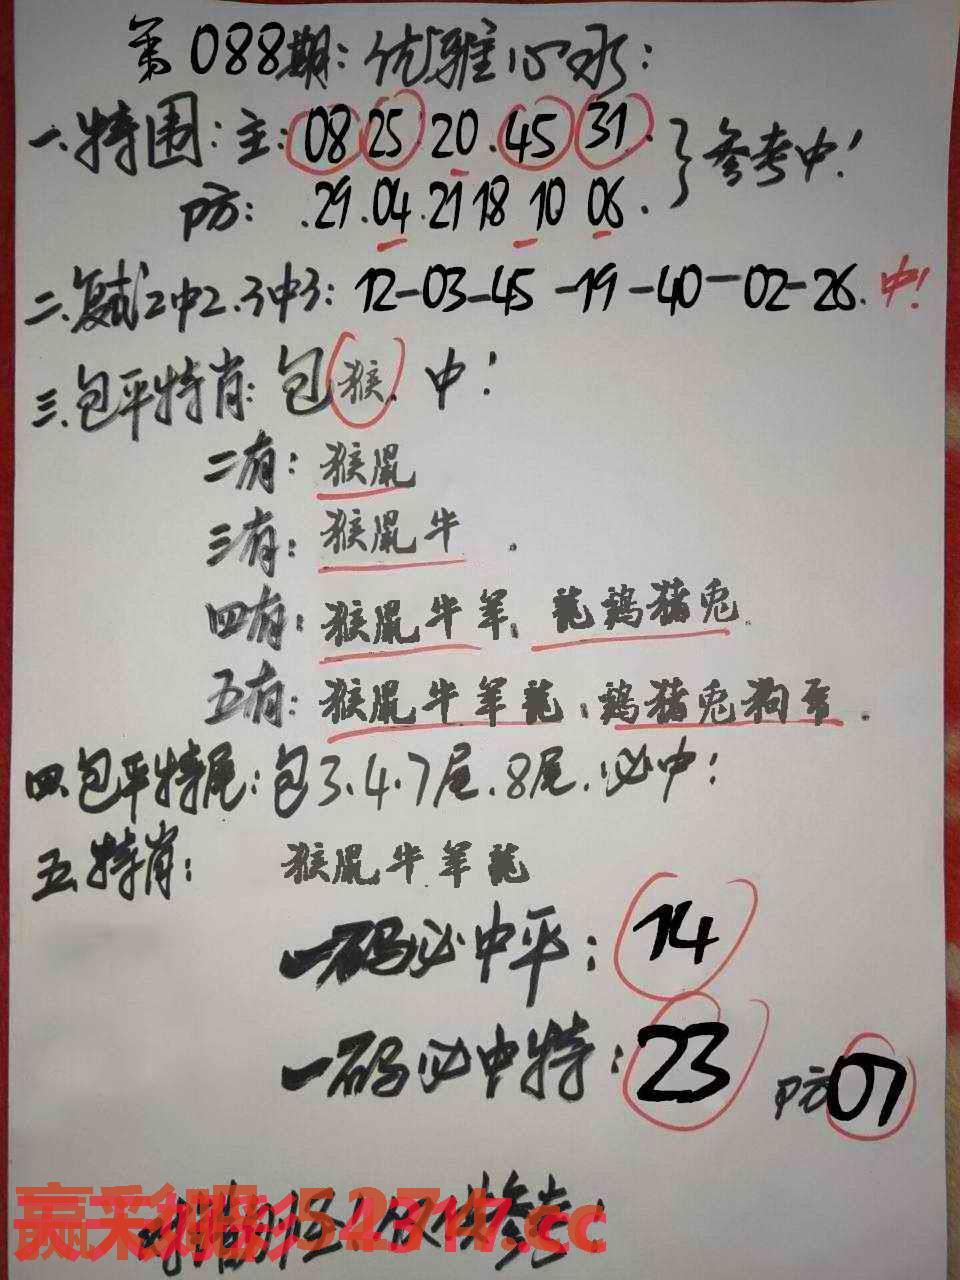 第088期:优雅心水:
一.特围:主:08 25 20.45 31.}参考中!
防:.29.04.21 18 10 06.
二.复式2中2.3中3:12-03-45-19-40-02-26.中!
三.包平特肖:包猴.中!
二有:猴鼠
三有:猴鼠牛.
四有:猴鼠牛羊.龙鸡猪兔.
五有:猴鼠牛羊龙:鸡猪兔狗
四.包平特尾:包3.4.7尾.8尾.必中!
五.特肖:猴鼠.牛.羊龙
一码必中平:14
一码必中特:23 防07